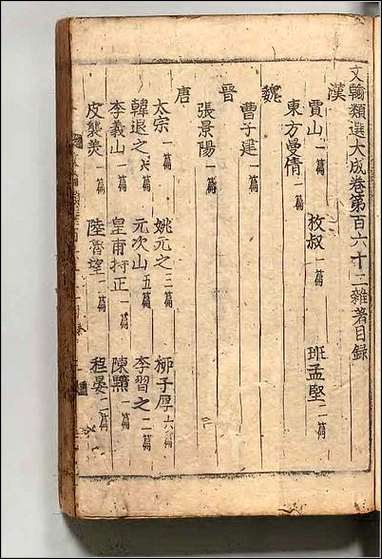 文翰類選大成卷第百六十二雜著目録
漢
賈山一篇 枚叔一篇 班孟堅二篇
東方曼倩一篇
魏
曹子建一篇
晋
張景陽一篇
唐
太宗一篇 姚元之三篇 柳子厚十六篇
韓退之六篇 元次山五篇 李習之二篇
李義山一篇 皇甫持正一篇 陳黯一篇
皮襲美一篇 陸魯望一篇 程晏一篇